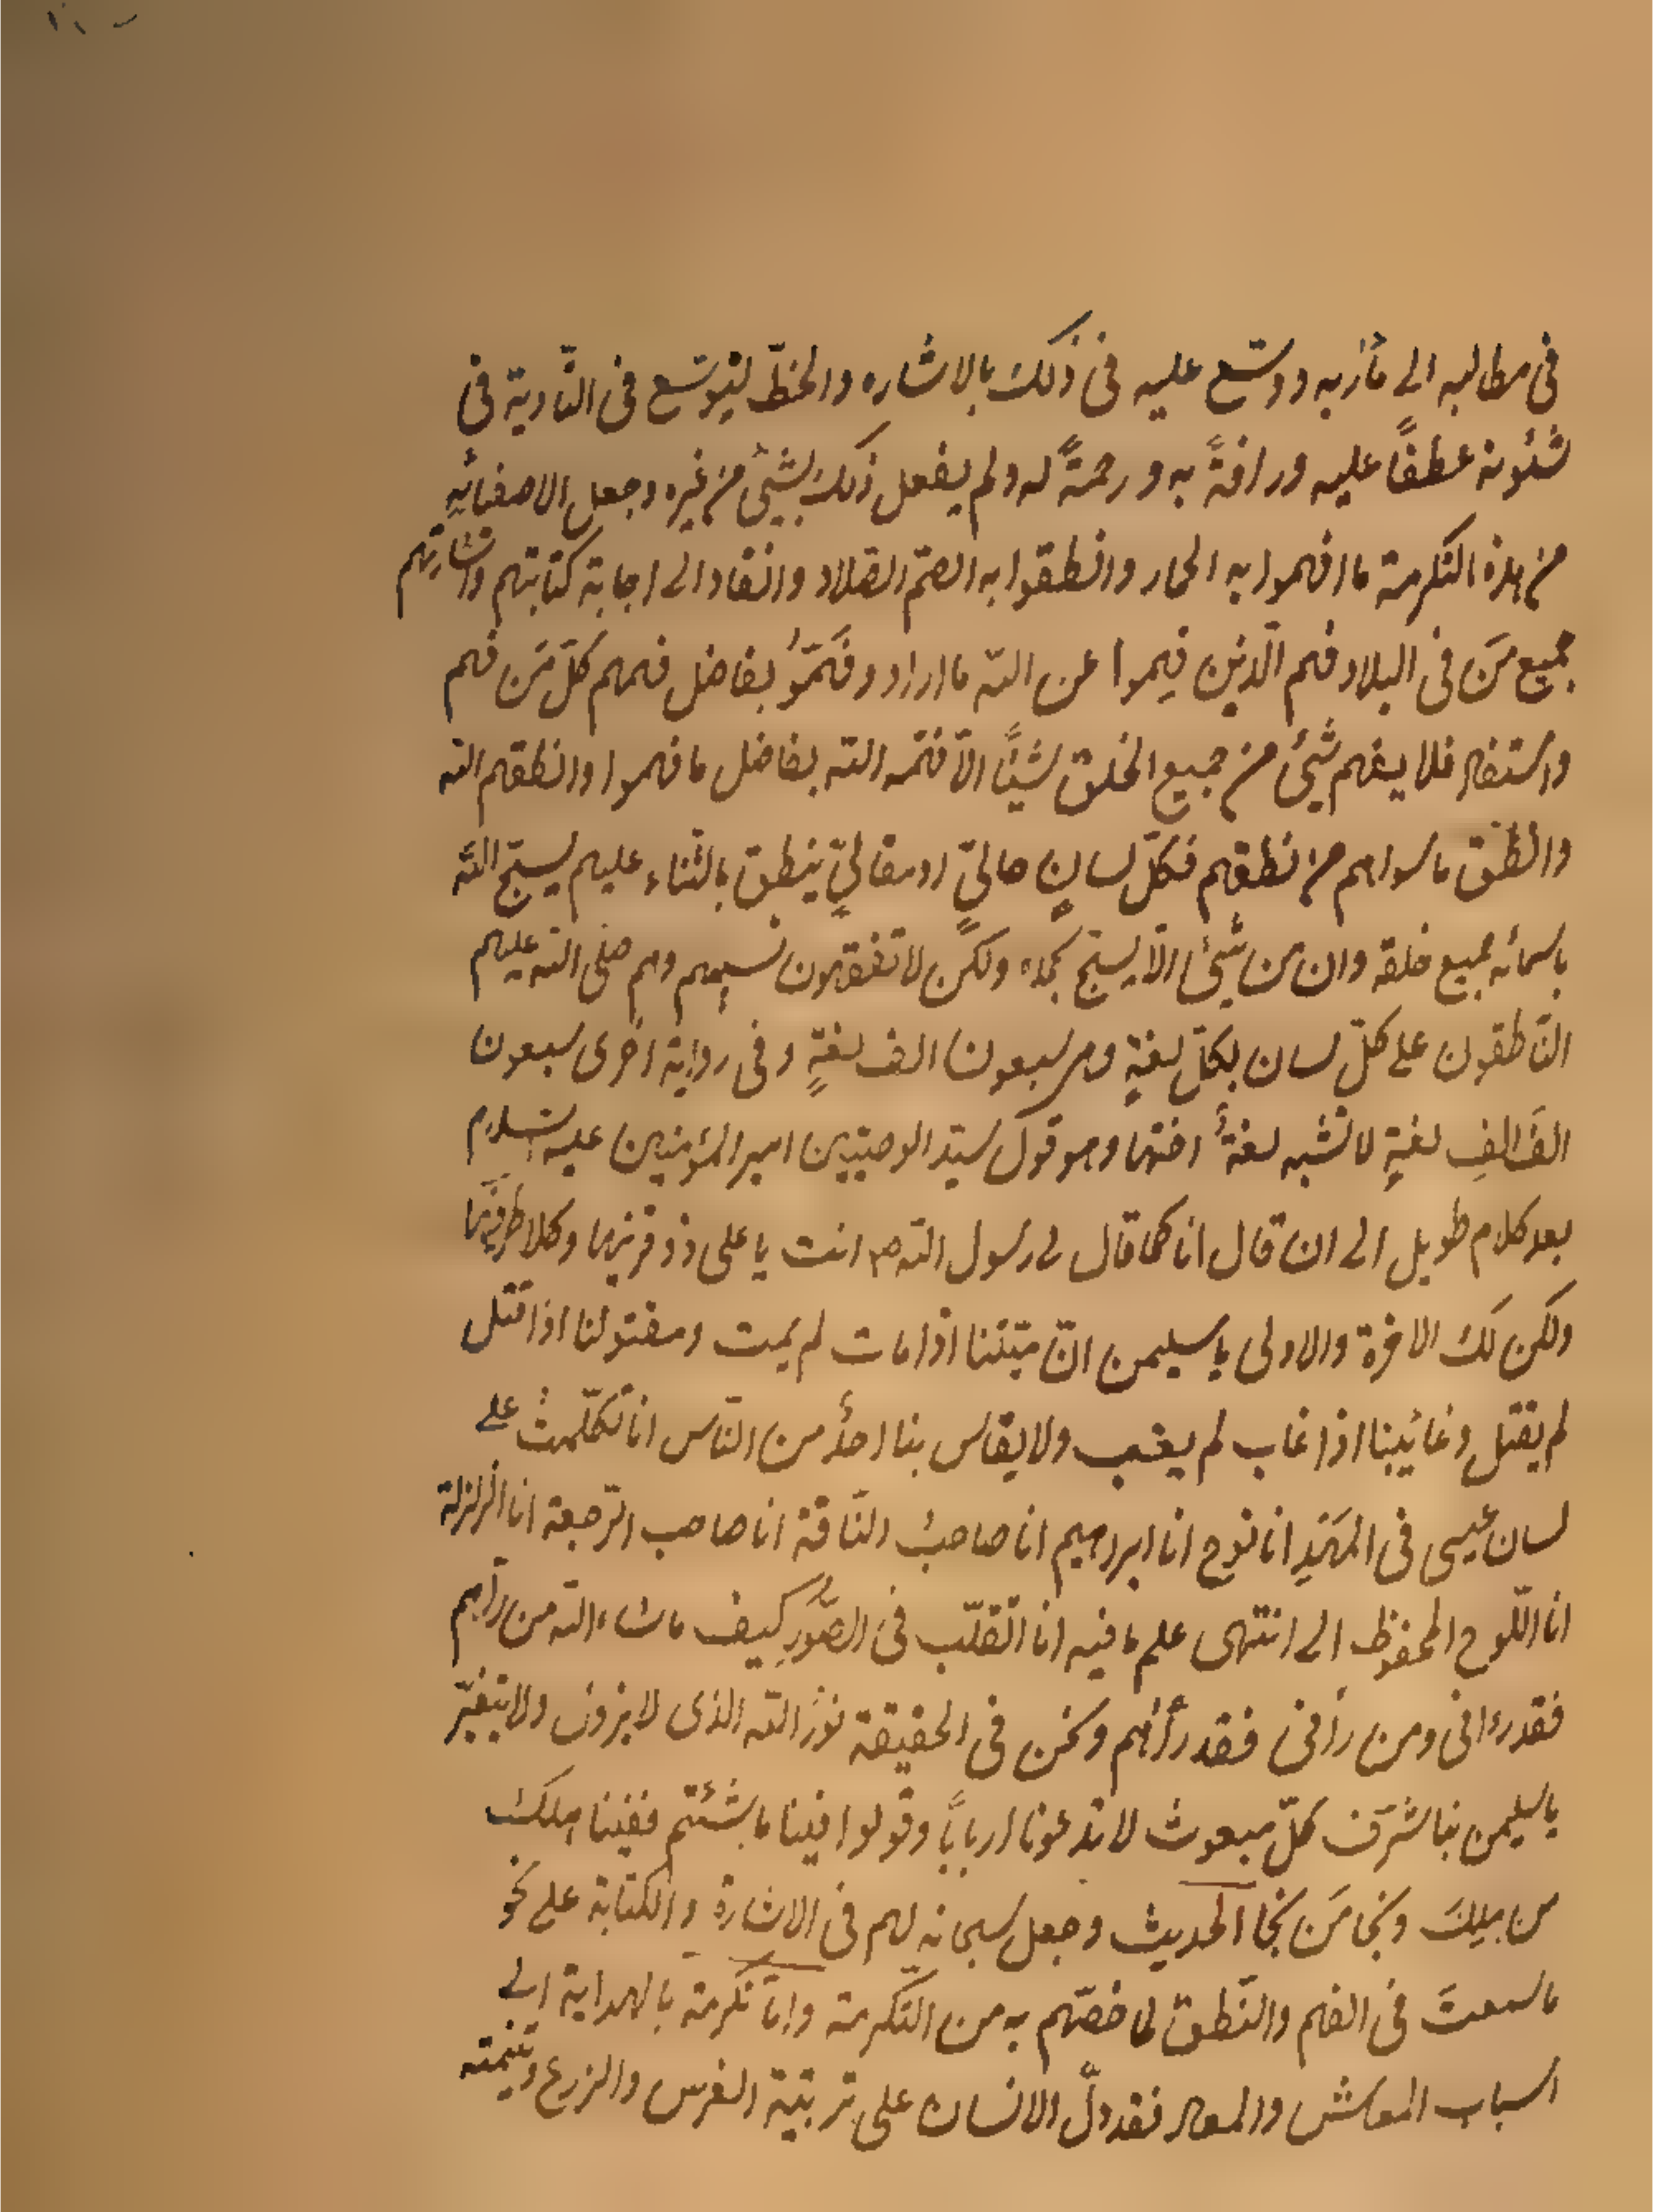 فى مطالبه الى مأربه ووسّع عليه فى ذلك بالاشاره والخطّ ليتوسّع فى التّأدية فى
شئونه عطفًا عليه ورافةً به ورحمةً له ولم يفعل ذلك بشيئ من غيره وجعل الاصفيائه
من هذه التكرمة ما افهموا به الجماد وانطقوا به الصّم الصّلاد وانقاد الى اجابة كتابتهم واشارتهم
جميع مَن فى البلاد فهم الّذين فهموا عن الله ما اراد وفهّموُا بفاضل فهمهم كلّ مَن فهم
واستفاد فلا يفهم شيئ من جميع الخلق شيئًا الّا فهّمه الله بفاضل ما فهموا وانطقهم الله
وانطق ما سواهم من نطقهم فكلّ لسانٍ حاليّ او مقاليّ ينطق بالثناء عليهم يسبّح اللهَ
باسمائه جميع خلقه وان من شيئ الّا يسبّح بحمده ولكن لا تفقهون تسبيحهم وهم صلى الله عليهم
النّاطقون على كلّ لسان بكلّ لغةٍ وهى سبعون الف لغةٍ وفى رواية اخرى سبعون
الفَ الفِ لغةٍ لا تشبه لغةٌ اختها وهو قول سيّد الوصيّين امير المؤمنين عليه السلام
بعد كلام طويل الى ان قال انا كما قال لى رسول الله ص انت يا على ذو قرنيها وكلا طرفَيها
ولكن لك الاخرة والاولى يا سليمن انّ ميّتنا اذا مات لم يمت ومقتولنا اذا قتل
لم يقتل وغائبنا اذا غاب لم يغب ولا يقاس بنا احدٌ من النّاس انا تكلّمتُ على
لسان عيسى فى المهَدِ انا نوح انا ابرهيم انا صاحبُ النّاقة انا صاحب الرّجعة انا الزلزلة
انا اللّوح المحفوظ الى انتهى علم ما فيه انا اتقلّب فى الصّوَرِ كيف ما شاء الله من رآهم
فقد رءانى ومن رأنى فقد رأهم ونحن فى الحقيقة نورُ الله الذى لا يزول ولا يتغيّر
يا سليمن بنا شرّف كلّ مبعوث لا تدعونا اربابًا وقولوا فينا ما شئتم ففينا هلك
من هلك ونجا مَن نجا الحديث وجعل سبحانه لهم فى الاشارة والكتابة على نحو
ما سمعتَ فى الفهم والنّطق لما خصّهم به من التكرمة وامّا تكرمة بالهداية الى
اسباب المعاش والمعاد فقد دلّ الانسان على تربية الغرس والزرع وتنميته